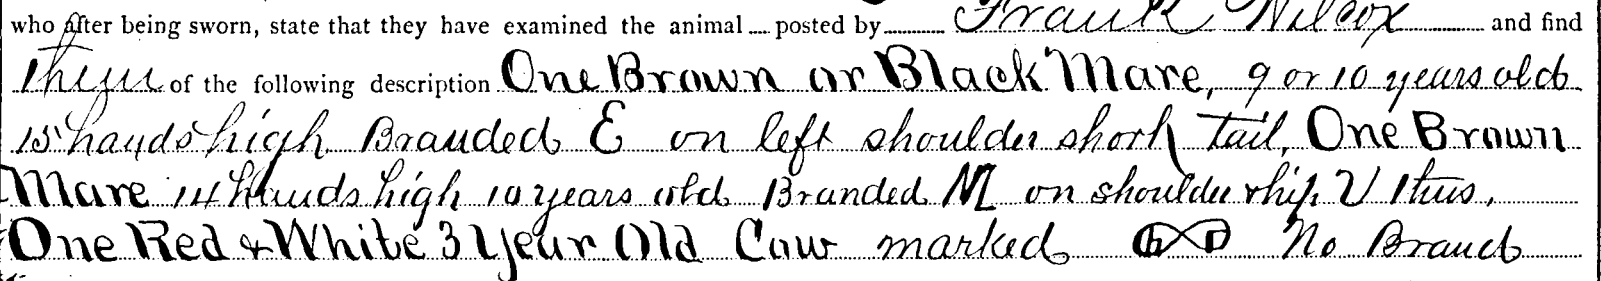 who after being sworn, state that they have examined the animal posted by Frank Wilcox and find
them of the following description One Brown or Black Mare, 9 or 10 years old
15 hands high Branded E on left shoulder short tail, One Brown
Mare 14 hands high 10 years old Branded M on shoulder & hip V thus,
One Red & White 3 Year Old Cow marked No Brand